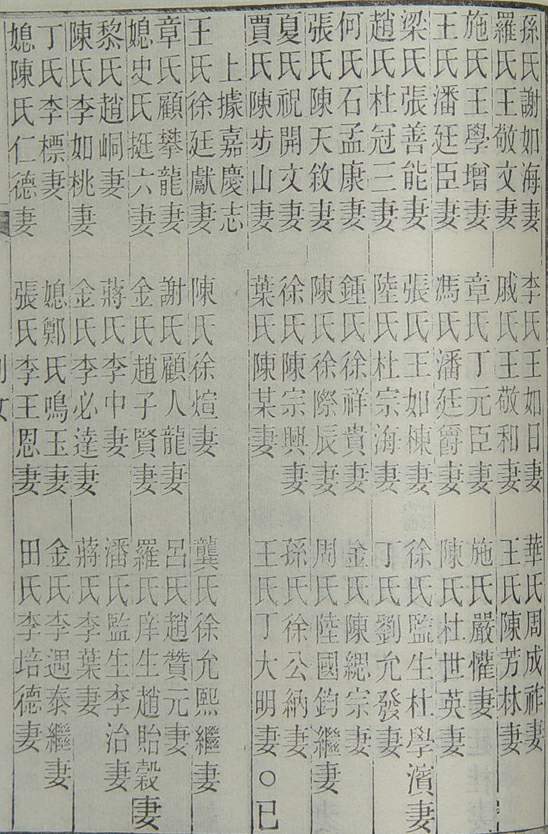 孫氏謝如海妻 李氏王如日妻 華氏周成祚妻
羅氏王敬文妻 戚氏王敬和妻 王氏陳芳林妻
施氏王學增妻 章氏丁元臣妻 施氏嚴懽妻
王氏潘廷臣妻 馮氏潘廷爵妻 陳氏杜世英妻
梁氏張善能妻 張氏王如棟妻 徐氏監生杜學濱妻
趙氏杜冠三妻 陸氏杜宗海妻 丁氏劉允發妻
何氏石孟康妻 鍾氏徐祥貴妻 金氏陳緫宗妻
張氏陳天敘妻 陳氏徐際辰妻 周氏陸國鈞繼妻
夏氏祝開文妻 徐氏陳宗興妻 孫氏徐公納妻
賈氏陳步山妻 葉氏陳某妻 王氏丁大明妻○已
上據嘉慶志
王氏徐廷獻妻 陳氏徐煊妻 龔氏徐允熙繼妻
章氏顧攀龍妻 謝氏顧人龍妻 呂氏趙贊元妻
媳史氏挺六妻 金氏趙子賢妻 羅氏庠生趙貽穀妻
黎氏趙峒妻 蔣氏李中妻 潘氏監生李治妻
陳氏李如桃妻 金氏李必達妻 蔣氏李葉妻
丁氏李標妻 媳鄭氏鳴玉妻 金氏李遇泰繼妻
媳陳氏仁德妻 張氏李王恩妻 田氏李培德妻